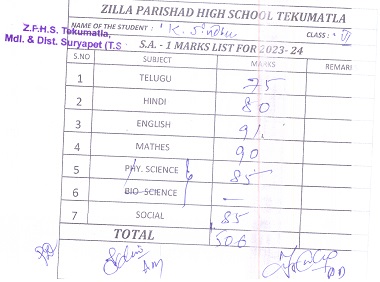 ZILLA PARISHAD HIGH SCHOOL TEKUMATLA
Z.P.H.S. Tekumatla,
Mdl. & Dist. Suryapet (T.S
NAME OF THE STUDENT : K. Sindhu CLASS : VI
S.A. - 1 MARKS LIST FOR 2023- 24
S.NO SUBJECT MARKS REMAR
1 TELUGU 75
2 HINDI 80
3 ENGLISH 91
4 MATHES 90
5 PHY. SCIENCE 85
6 BIO-SCIENCE –
7 SOCIAL 85
TOTAL 506